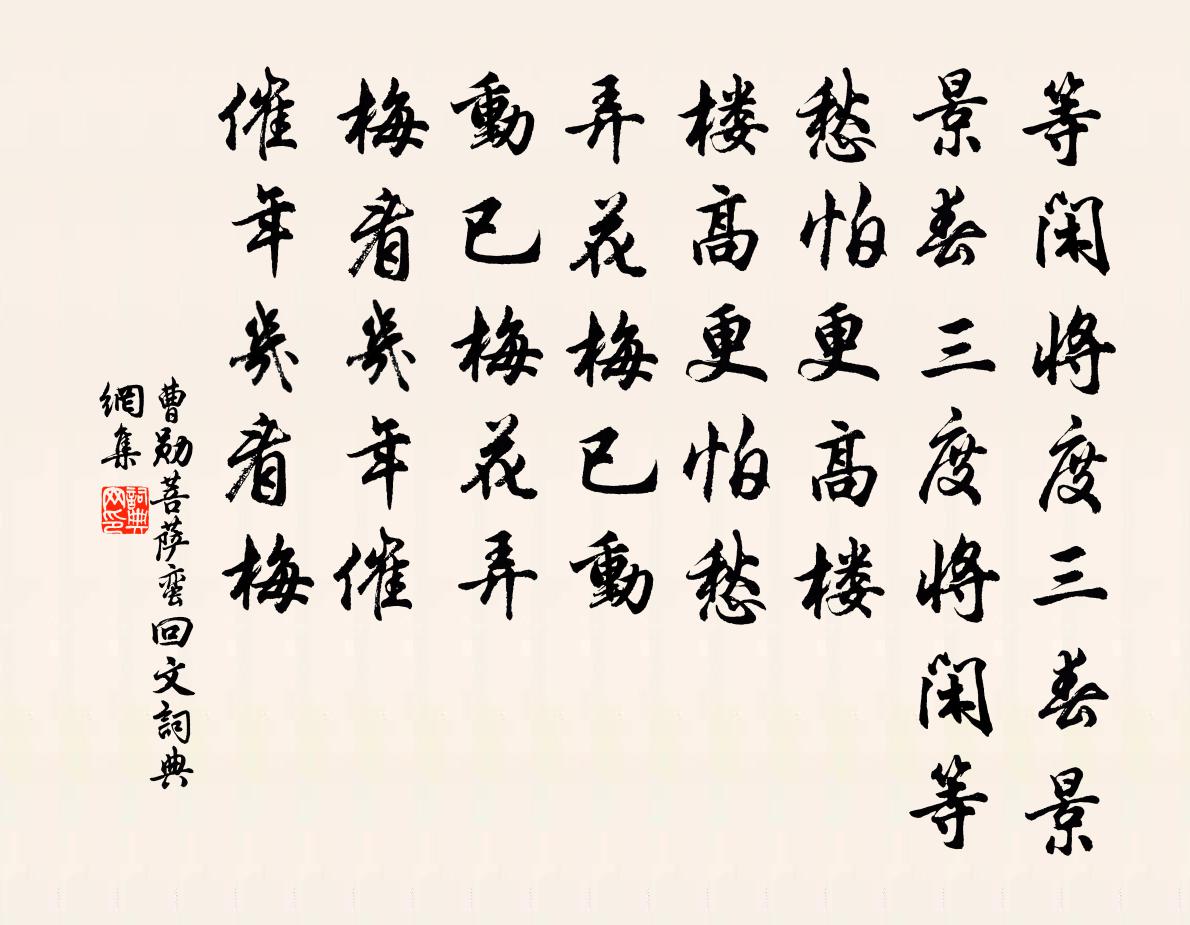 等闲将度三春景
景春三度将闲等
愁怕更高楼
楼高更怕愁
弄花梅已動
動已梅花弄
梅看幾年催
催年幾看梅
曹勋菩萨蛮回文詞典
網集
詞典
网印